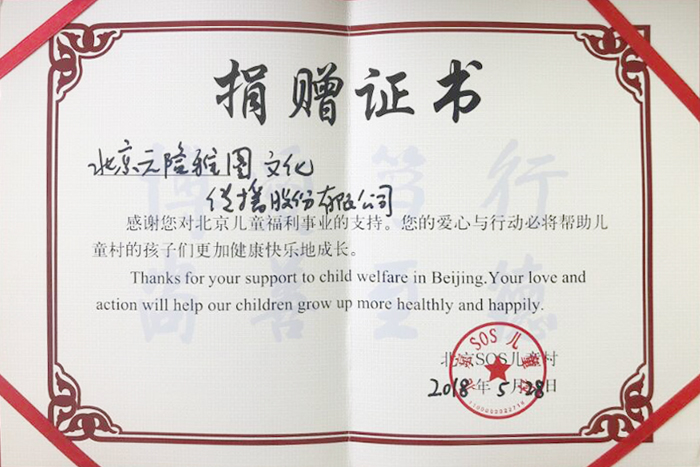 捐赠证书
北京元隆雅图文化
传播股份有限公司
感谢您对北京儿童福利事业的支持。您的爱心与行动必将帮助儿
童村的孩子们更加健康快乐地成长。
Thanks for your support to child welfare in Beijing.Your love and
action will help our children grow up more healthly and happily.
北京SOS儿童村
2018年5月28日
博雅笃行
尚善至德
北京SOS儿童村